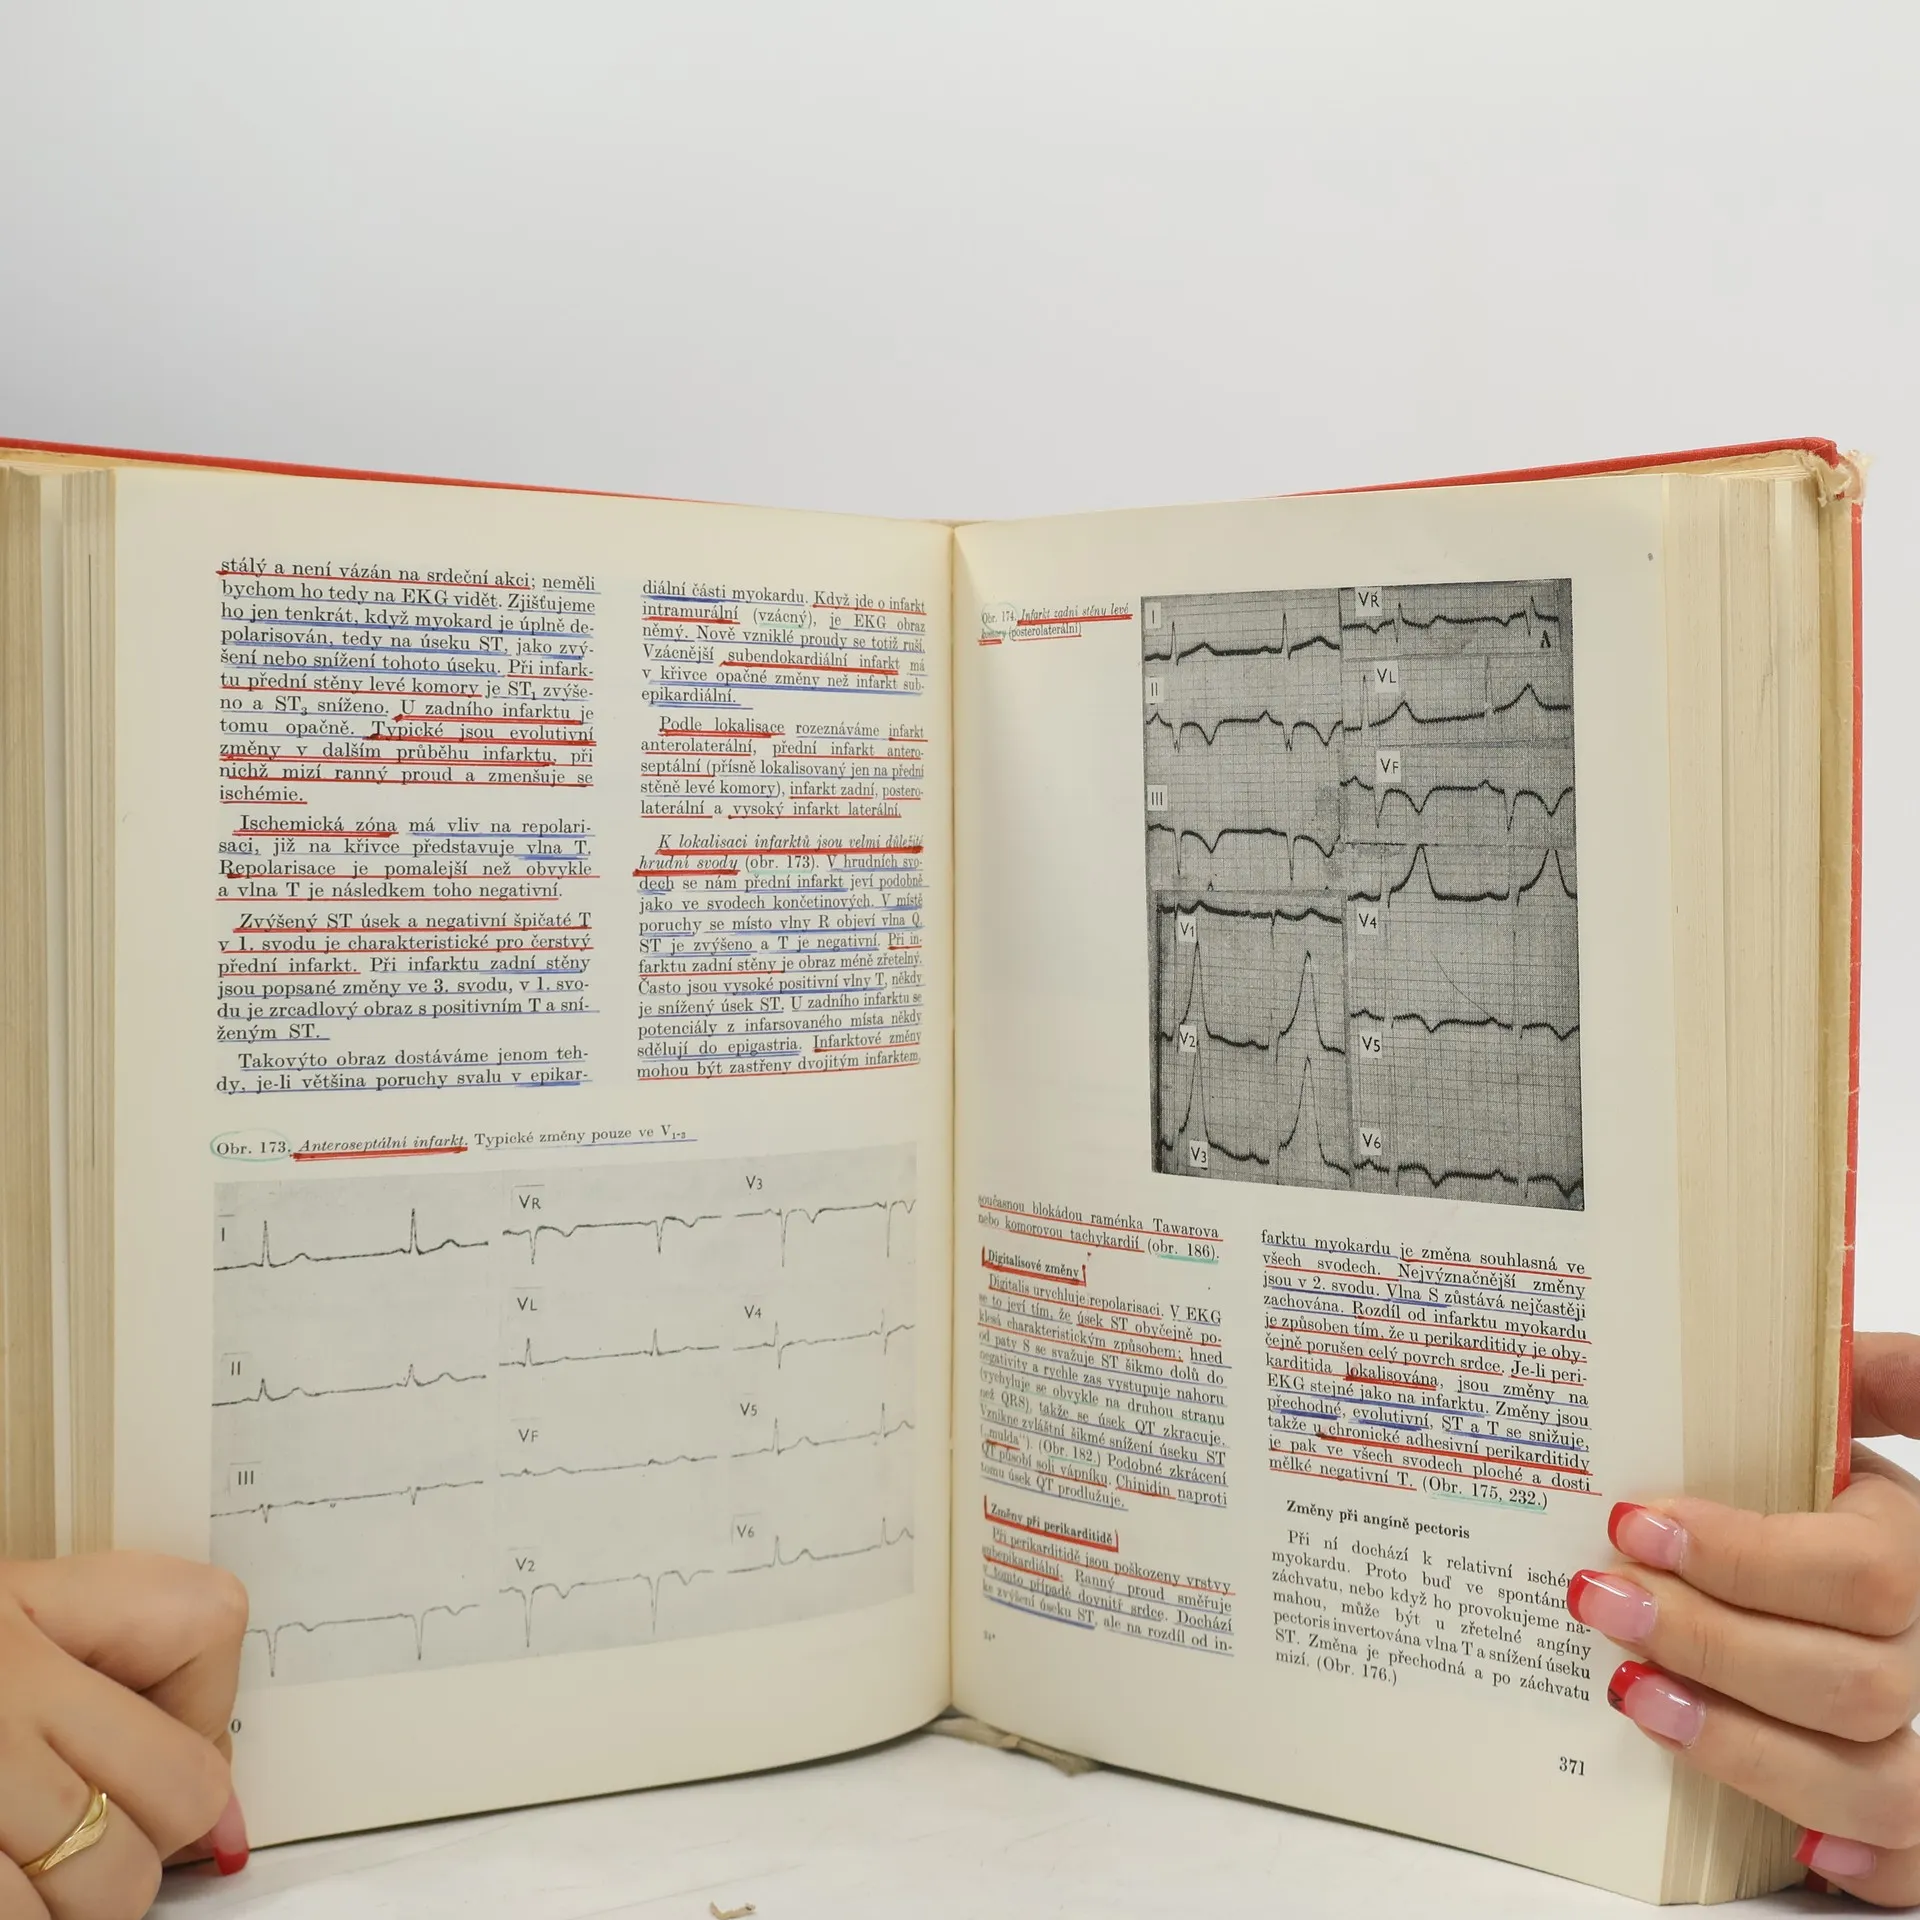 stálý a není vázán na srdeční akci; neměli
bychom ho tedy na EKG vidět. Zjišťujeme
ho jen tenkrát, když myokard je úplně de-
polarisován, tedy na úseku ST, jako zvý-
šení nebo snížení tohoto úseku. Při infark-
tu přední stěny levé komory je ST₁ zvýše-
no a ST₃ sníženo. U zadního infarktu je
tomu opačně. Typické jsou evolutivní
změny v dalším průběhu infarktu, při
nichž mizí ranný proud a zmenšuje se
ischémie.
Ischemická zóna má vliv na repolari-
saci, již na křivce představuje vlna T.
Repolarisace je pomalejší než obvykle
a vlna T je následkem toho negativní.
Zvýšený ST úsek a negativní špičaté T
v 1. svodu je charakteristické pro čerstvý
přední infarkt. Při infarktu zadní stěny
jsou popsané změny ve 3. svodu, v 1. svo-
du je zrcadlový obraz s positivním T a sní-
ženým ST.
Takovýto obraz dostáváme jenom teh-
dy, je-li většina poruchy svalu v epikar-
diální části myokardu. Když jde o infarkt
intramurální (vzácný), je EKG obraz
němý. Nově vzniklé proudy se totiž ruší.
Vzácnější subendokardiální infarkt má
v křivce opačné změny než infarkt sub-
epikardiální.
Podle lokalisace rozeznáváme infarkt
anterolaterální, přední infarkt antero-
septální (přísně lokalisovaný jen na přední
stěně levé komory), infarkt zadní, postero-
laterální a vysoký infarkt laterální.
K lokalisaci infarktů jsou velmi důležité
hrudní svody (obr. 173). V hrudních svo-
dech se nám přední infarkt jeví podobně
jako ve svodech končetinových. V místě
poruchy se místo vlny R objeví vlna Q,
ST je zvýšeno a T je negativní. Při in-
farktu zadní stěny je obraz méně zřetelný.
Často jsou vysoké positivní vlny T, někdy
je snížený úsek ST. U zadního infarktu se
potenciály z infarsovaného místa někdy
sdělují do epigastria. Infarktové změny
mohou být zastřeny dvojitým infarktem,
Obr. 173. Anteroseptální infarkt. Typické změny pouze ve V₁₋₃
I
VR
V3
II
VL
V4
III
VF
V5
V2
V6
0
Obr. 174. Infarkt zadní stěny levé
komory (posterolaterální)
I
VR
II
VL
III
VF
V1
V4
V2
V5
V3
V6
současnou blokádou raménka Tawarova
nebo komorovou tachykardií (obr. 186).
Digitalisové změny
Digitalis urychluje repolarisaci. V EKG
se to jeví tím, že úsek ST obyčejně po-
klesá charakteristickým způsobem; hned
od paty S se svažuje ST šikmo dolů do
negativity a rychle zas vystupuje nahoru
(vychyluje se obvykle na druhou stranu
než QRS), takže se úsek QT zkracuje.
Vznikne zvláštní šikmé snížení úseku ST
(„mulda“). (Obr. 182.) Podobné zkrácení
QT působí soli vápníku. Chinidin naproti
tomu úsek QT prodlužuje.
Změny při perikarditidě
Při perikarditidě jsou poškozeny vrstvy
subepikardiální. Ranný proud směřuje
v tomto případě dovnitř srdce. Dochází
ke zvýšení úseku ST, ale na rozdíl od in-
24*
farktu myokardu je změna souhlasná ve
všech svodech. Nejvýznačnější změny
jsou v 2. svodu. Vlna S zůstává nejčastěji
zachována. Rozdíl od infarktu myokardu
je způsoben tím, že u perikarditidy je oby-
čejně porušen celý povrch srdce. Je-li peri-
karditida lokalisována, jsou změny na
EKG stejné jako na infarktu. Změny jsou
přechodné, evolutivní, ST a T se snižuje,
takže u chronické adhesivní perikarditidy
je pak ve všech svodech ploché a dosti
mělké negativní T. (Obr. 175, 232.)
Změny při angině pectoris
Při ní dochází k relativní ischém
myokardu. Proto buď ve spontánn
záchvatu, nebo když ho provokujeme ná-
mahou, může být u zřetelné angíny
pectoris invertována vlna T a snížení úseku
ST. Změna je přechodná a po záchvatu
mizí. (Obr. 176.)
371